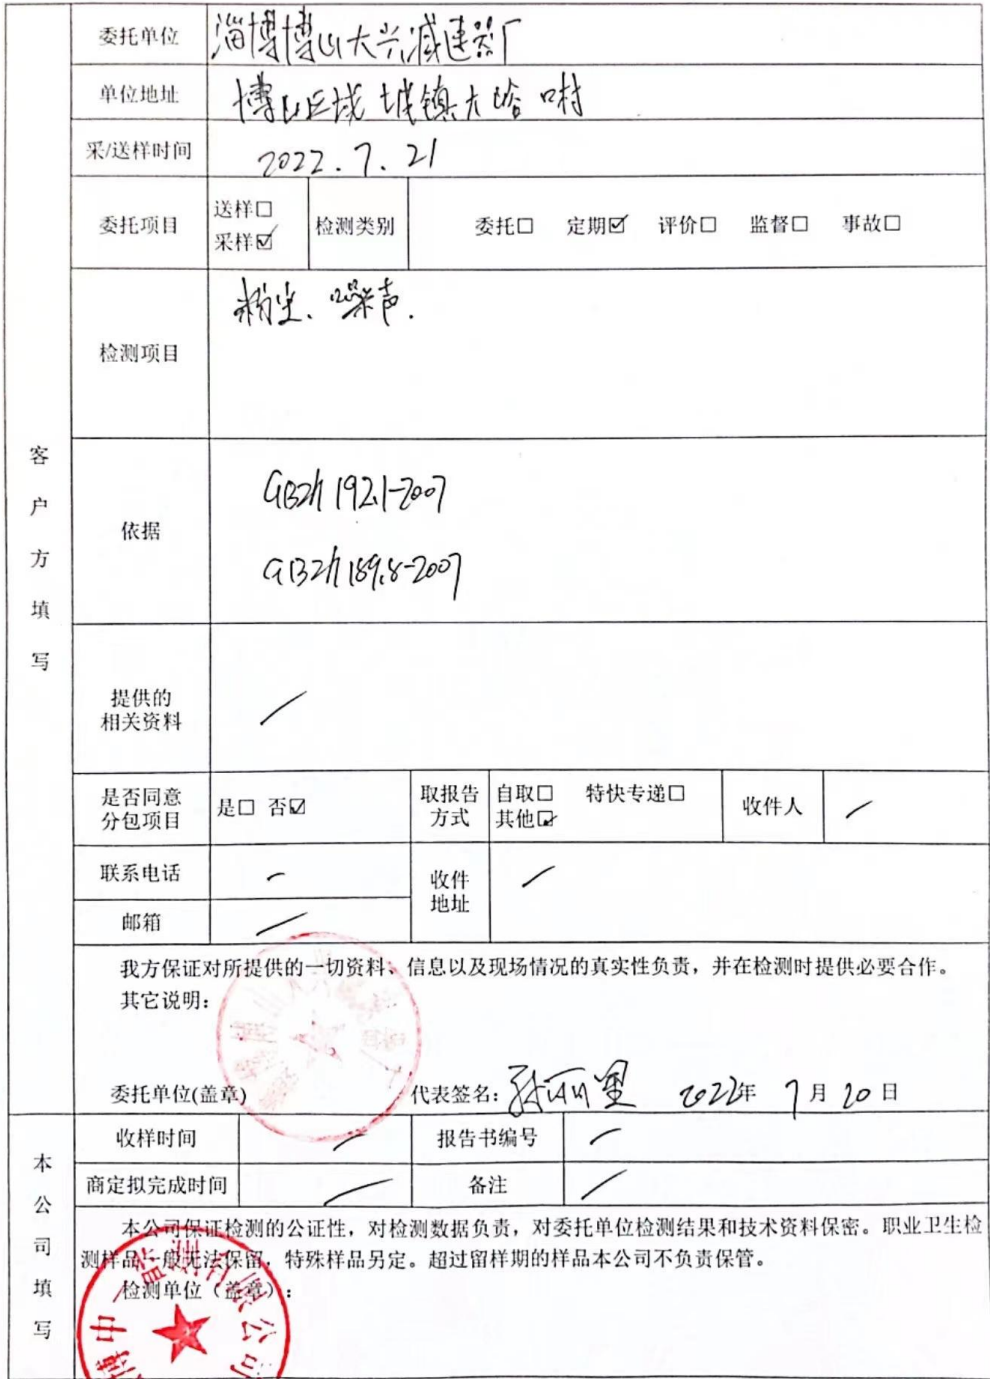 委托单位 淄博博山大兴减速器厂
单位地址 博山区域城镇大峪口村
采/送样时间 2022.7.21
委托项目 送样□ 采样☑ 检测类别 委托□ 定期☑ 评价□ 监督□ 事故□
检测项目 粉尘、噪声.
客户方填写
依据 GBZ/T 192.1-2007
GBZ/T 189.8-2007
提供的
相关资料 /
是否同意
分包项目 是□ 否☑ 取报告
方式 自取□ 特快专递□
其他☑ 收件人 /
联系电话 - 收件
地址 /
邮箱 /
我方保证对所提供的一切资料、信息以及现场情况的真实性负责，并在检测时提供必要合作。
其它说明：
委托单位(盖章) 代表签名： 2022年 7月20日
本公司填写
收样时间 / 报告书编号 /
商定拟完成时间 / 备注 /
本公司保证检测的公证性，对检测数据负责，对委托单位检测结果和技术资料保密。职业卫生检
测样品一般无法保留，特殊样品另定。超过留样期的样品本公司不负责保管。
检测单位（盖章）：